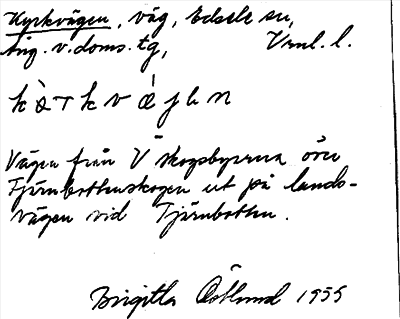 Kyrkvägen, väg, Edsele sn,
Ång. v. doms. tg, Vnl. l.
Vägen från V Skogsbyarna över
Tjärnbottenskogen ut på lands-
vägen vid Tjärnbotten.
Birgitta Östlund 1955